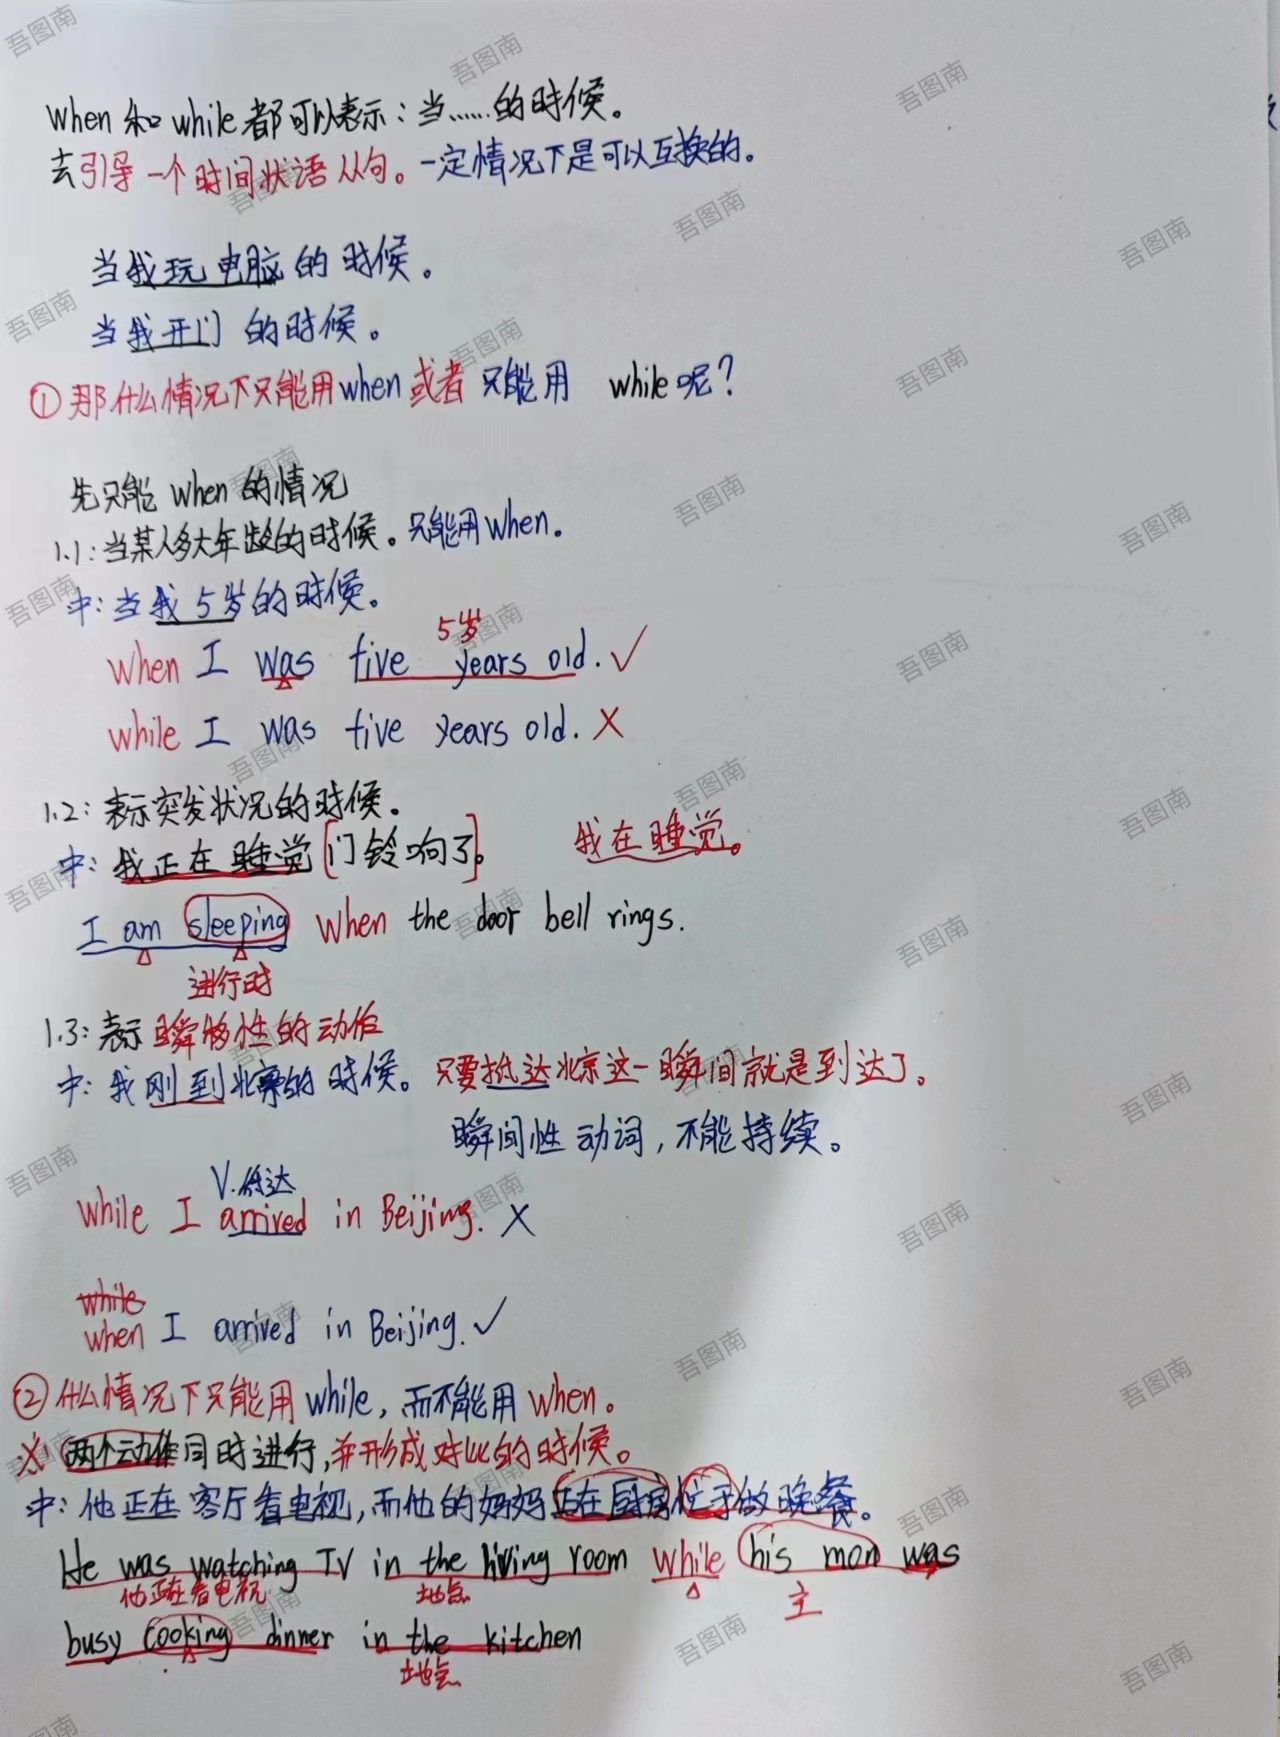 when 和 while 都可以表示：当……的时候。
去引导一个时间状语从句。一定情况下是可以互换的。
当我玩电脑的时候。
当我开门的时候。
① 那什么情况下只能用when或者只能用 while呢？
先只能 when 的情况
1.1：当某人多大年龄的时候。只能用when。
中：当我5岁的时候。
5岁
when I was five years old. ✓
while I was five years old. ×
1.2：表示突发状况的时候。
中：我正在睡觉[门铃响了]。 我在睡觉。
I am sleeping when the door bell rings.
进行时
1.3：表示瞬移性的动作
中：我刚到北京的时候。只要抵达北京这一瞬间就是到达了。
瞬间性动词，不能持续。
V.抵达
while I arrived in Beijing. ×
while
when I arrived in Beijing. ✓
② 什么情况下只能用while，而不能用when。
※ 两个动作同时进行，并形成对比的时候。
中：他正在客厅看电视，而他的妈妈正在厨房忙于做晚餐。
He was watching TV in the living room while his mon was
他正在看电视 地点 主
busy cooking dinner in the kitchen
地点
吾图南